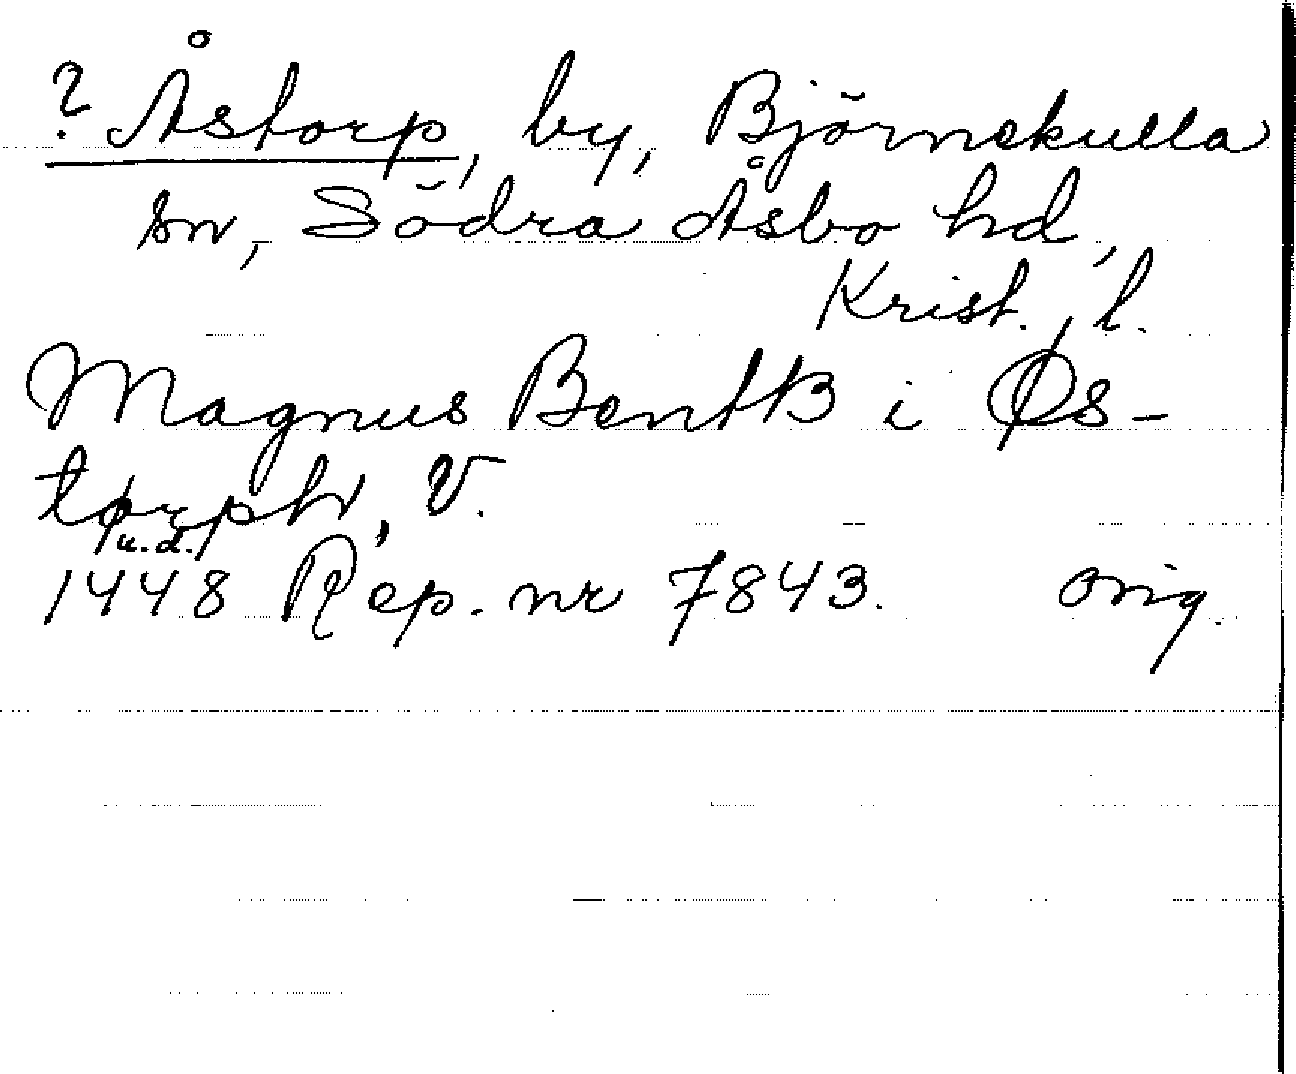 ? Åstorp, by, Björnekulla
sn, Södra Åsbo hd,
Krist. l.
Magnus Bentß i Øs-
torph, V.
u. d.
1448 Rep. nr 7843. orig.